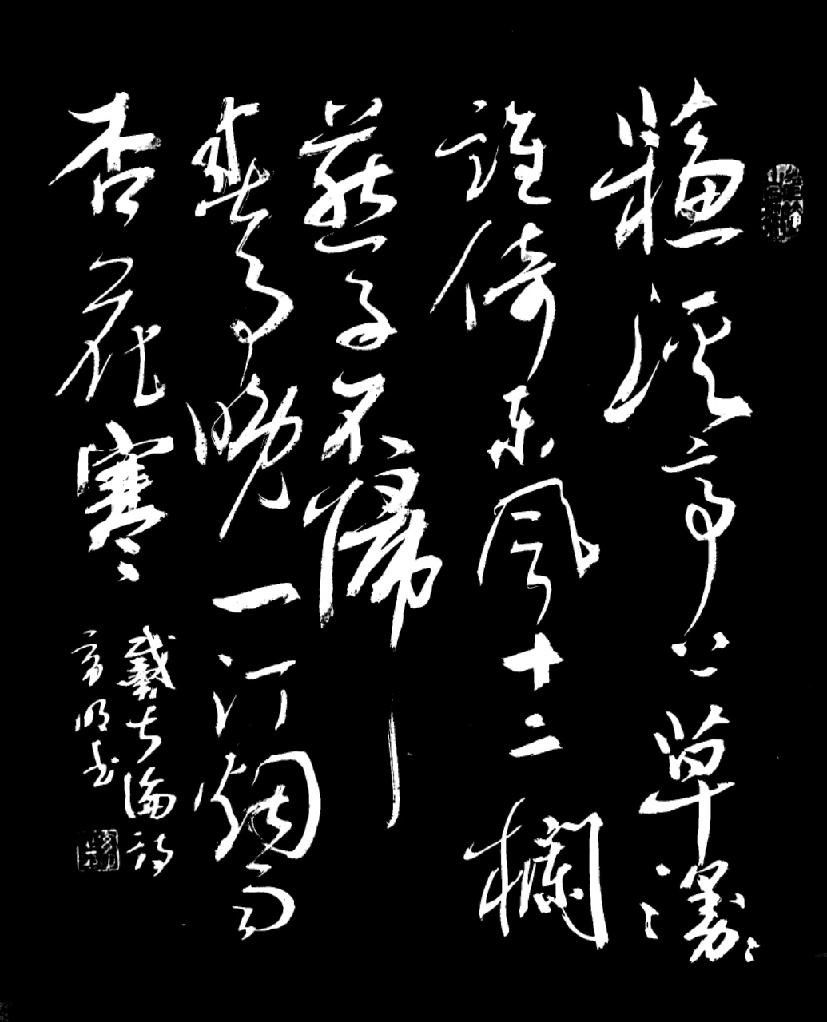 蘇溪亭上草漫〻
誰倚东風十二欄
燕子不歸
春事晚一汀烟雨
杏花寒
戴叔倫詩
明书